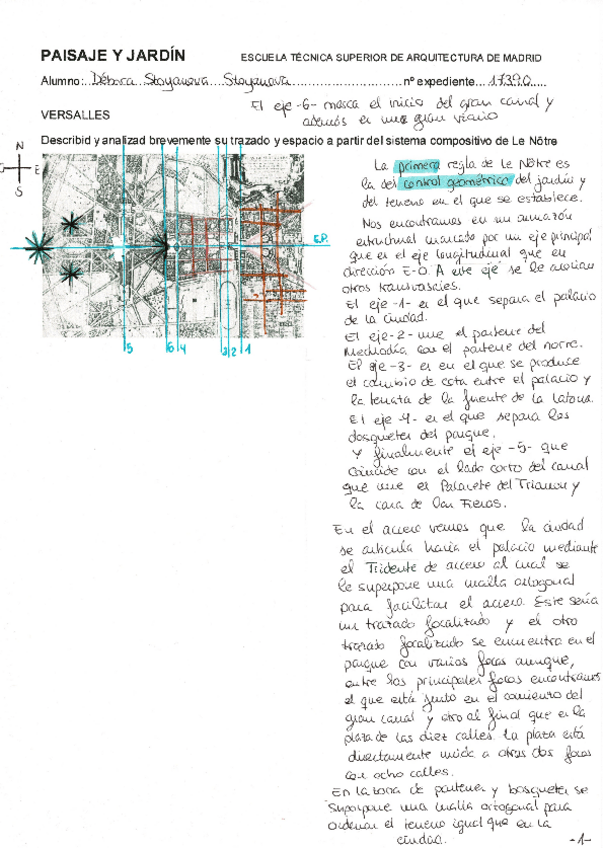 PAISAJE Y JARDÍN
ESCUELA TÉCNICA SUPERIOR DE ARQUITECTURA DE MADRID
Alumno: Débora Stoyanova Stoyanova nº expediente 17390
VERSALLES
El eje -6- marca el inicio del gran canal y
además es una gran
Describid y analizad brevemente su trazado y espacio a partir del sistema compositivo de Le Nôtre
N
O E
S
E.P.
5 6 4 3 2 1
La primera regla de Le Nôtre es
la del control geométrico del jardín y
del terreno en el que se establece.
Nos encontramos en un armazón
estructural marcado por un eje principal
que es el eje longitudinal que en
dirección E-O. A este eje se le asocian
otros transversales.
El eje -1- es el que separa el palacio
de la ciudad.
El eje -2- une el parterre del
Mediodía con el parterre del norte.
El eje -3- es en el que se produce
el cambio de cota entre el palacio y
la terraza de la fuente de la Latona.
El eje -4- es el que separa los
bosquetes del parque.
Y finalmente el eje -5- que
coincide con el lado corto del canal
que une el Palacete del Trianon y
la casa de las Fieras.
En el acceso vemos que la ciudad
se articula hacia el palacio mediante
el Tridente de acceso al cual se
le superpone una malla ortogonal
para facilitar el acceso. Este sería
un trazado focalizado y el otro
trazado focalizado se encuentra en el
parque con varios focos aunque,
entre los principales focos encontramos
el que está justo en el comienzo del
gran canal y otro al final que es la
plaza de las diez calles. La plaza está
directamente unida a otros dos focos
con ocho calles.
En la zona de parterres y bosquetes se
superpone una malla ortogonal para
ordenar el terreno igual que en la
ciudad.
-1-